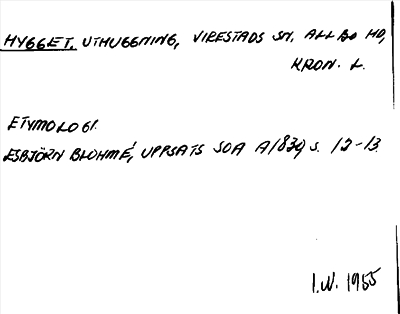 HYGGET, UTHUGGNING, VIRESTADS SN, ALLBO HD,
KRON. L.
ETYMOLOGI.
ESBJÖRN BLOHMÉ, UPPSATS SOA A1839 s. 12-13.
I.W. 1955